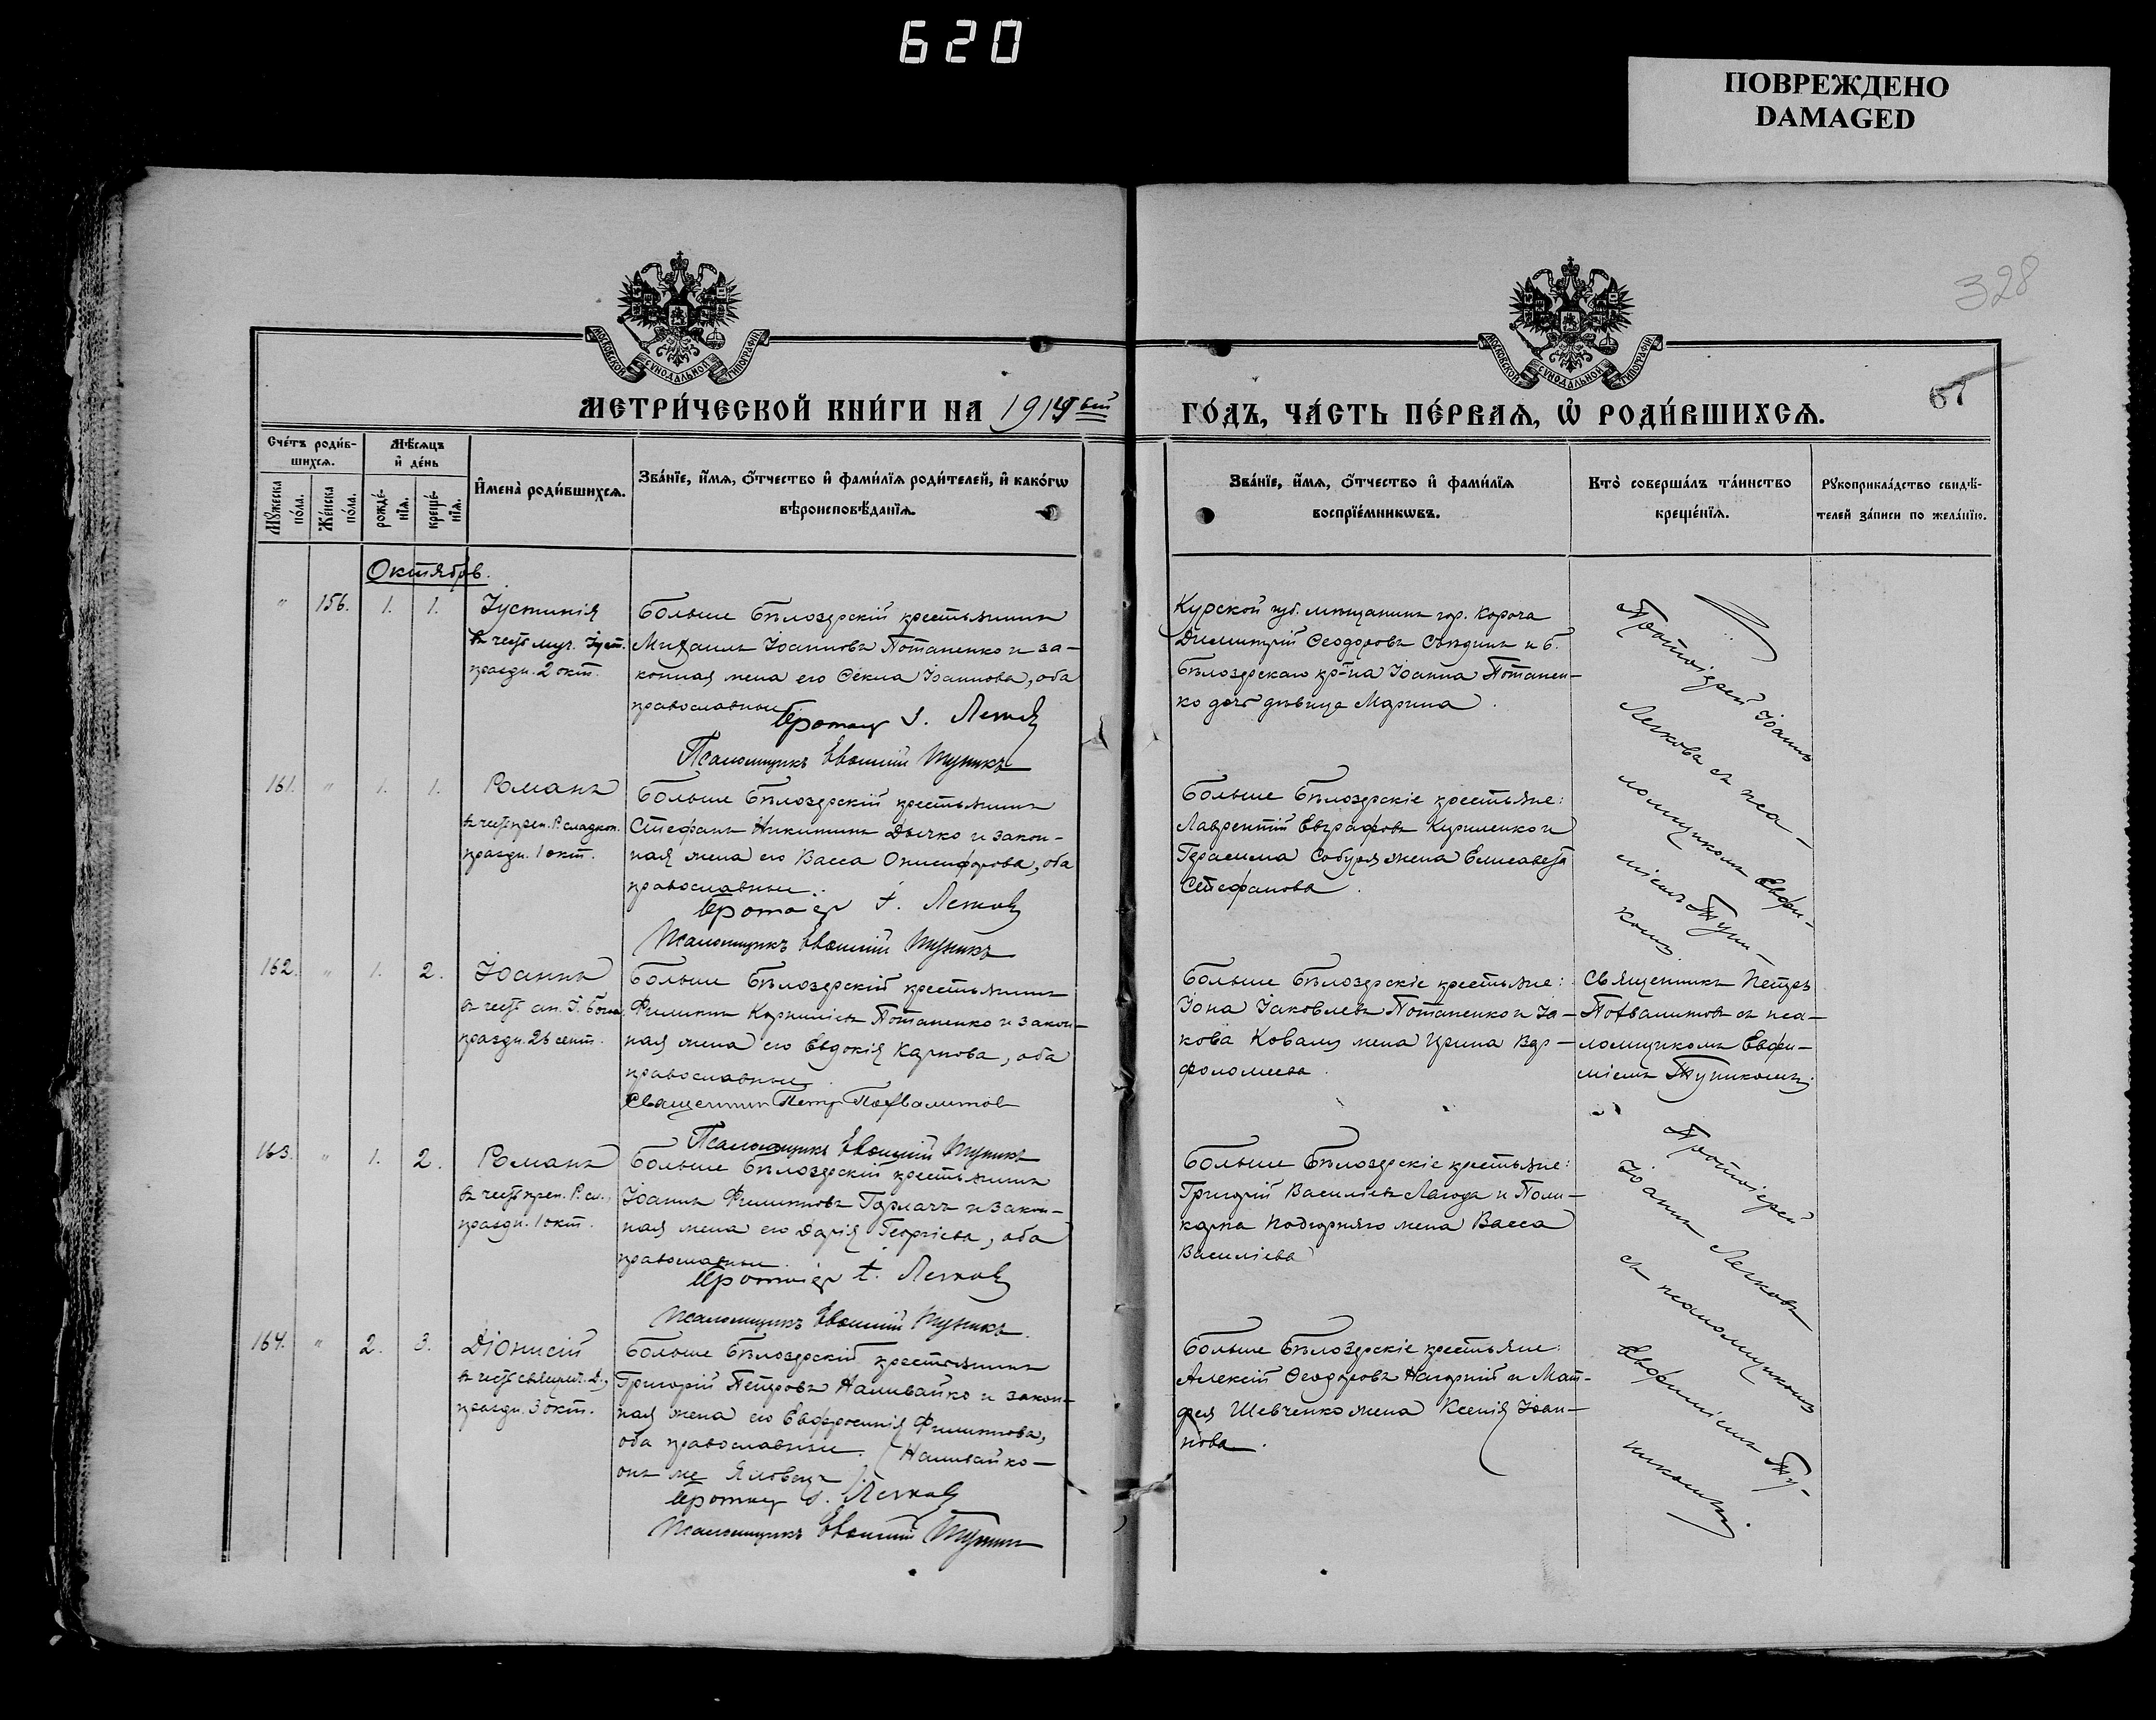 620
ПОВРЕЖДЕНО
DAMAGED
328
67
МОСКОВСКОЙ СУНОДАЛЬНОЙ ТИПОГРАФІИ
МОСКОВСКОЙ СУНОДАЛЬНОЙ ТИПОГРАФІИ
МЕТРИ́ЧЕСКОЙ КНИ́ГИ НА 1914ый ГО́ДЪ, ЧА́СТЬ ПЕ́РВАѦ, Ѡ҆ РОДИ́ВШИХСѦ.
Сче́тъ роди́в-
шихсѧ.
Мꙋ́жеска по́ла.
Же́нска по́ла.
Мѣ́сѧцъ
и҆ де́нь
рожде́-
нїѧ.
креще́-
нїѧ.
И҆мена̀ роди́вшихсѧ.
Зва́нїе, и҆́мѧ, о҆́тчество и҆ фами́лїѧ роди́телей, и҆ како́гѡ
вѣроисповѣ́данїѧ.
Зва́нїе, и҆́мѧ, о҆́тчество и҆ фами́лїѧ
воспрїе́мникѡвъ.
Кто̀ соверша́лъ та́инство
креще́нїѧ.
Рꙋкоприкла́дство свидѣ́-
телей за́писи по жела́нїю.
Октябрь.
" 156. 1. 1. Іустинія
въ честь муч. Іуст.
праздн. 2 окт.
Больше Бѣлозерскій крестьянинъ
Михаилъ Іоанновъ Потапенко и за-
конная жена его Ѳекла Іоаннова, оба
православные
І. Легков
Псаломщикъ Евѳимій Тупикъ
Курской губ. мѣщанинъ гор. Короча
Димитрій Ѳеодоровъ и Б.
Бѣлозерскаго кр-на Іоанна Потапен-
ко дочь дѣвица Марина.
Протоіерей Іоаннъ
Легковъ съ пса-
ломщикомъ Евфи-
міемъ Тупи-
комъ
161. " 1. 1. Романъ
въ честь преп. Р. сладкоп.
праздн. 1 окт.
Больше Бѣлозерскій крестьянинъ
Стефанъ Никитинъ Дычко и закон-
ная жена его Васса Онисифорова, оба
православные.
І. Легковъ
Псаломщикъ Евѳимій Тупикъ
Больше Бѣлозерскіе крестьяне:
Лаврентій Евграфовъ Куриленко и
Герасима Собура жена Елисавета
Стефанова.
162. " 1. 2. Іоаннъ
въ честь ап. І. Богос.
праздн. 26 сент.
Больше Бѣлозерскій крестьянинъ
Филиппъ Корниліевъ Потапенко и закон-
ная жена его Евдокія Карпова, оба
православные.
Священникъ Петръ Похвалитовъ
Псаломщикъ Евѳимій Тупикъ
Больше Бѣлозерскіе крестьяне:
Іона Іаковлевъ Потапенко и Іа-
кова Коваля жена Ирина Вар-
фоломеева.
Священникъ Петръ
Похвалитовъ съ пса-
ломщикомъ Евфи-
міемъ Тупикомъ.
163. " 1. 2. Романъ
въ честь преп. Р. сл.,
праздн. 1 окт.
Больше Бѣлозерскій крестьянинъ
Іоаннъ Филипповъ Гармашъ и закон-
ная жена его Дарія Георгіева, оба
православные.
Протоіер І. Легковъ
Псаломщикъ Евѳимій Тупикъ.
Больше Бѣлозерскіе крестьяне:
Григорій Василіевъ Лагода и Поли-
карпа Подгорняго жена Васса
Василіева
Протоіерей
Іоаннъ Легковъ
съ псаломщикомъ
Евфиміемъ Ту-
пикомъ.
164. " 2. 3. Діонисій
въ честь свящмч. Д.,
праздн. 3 окт.
Больше Бѣлозерскій крестьянинъ
Григорій Петровъ Наливайко и закон-
ная жена его Евфросинія Филиппова,
оба православные. (Наливайко-
онъ же Яловецъ).
І. Легковъ
Псаломщикъ Евѳимій Тупикъ
Больше Бѣлозерскіе крестьяне:
Алексій Ѳеодоровъ Нагорній и Мат-
фея Шевченко жена Ксенія Іоан-
нова.